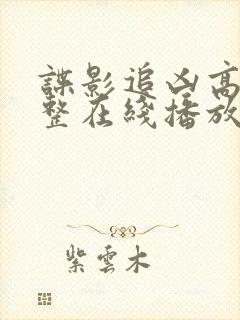 諜影追凶高
整在綫播放
紫雲木